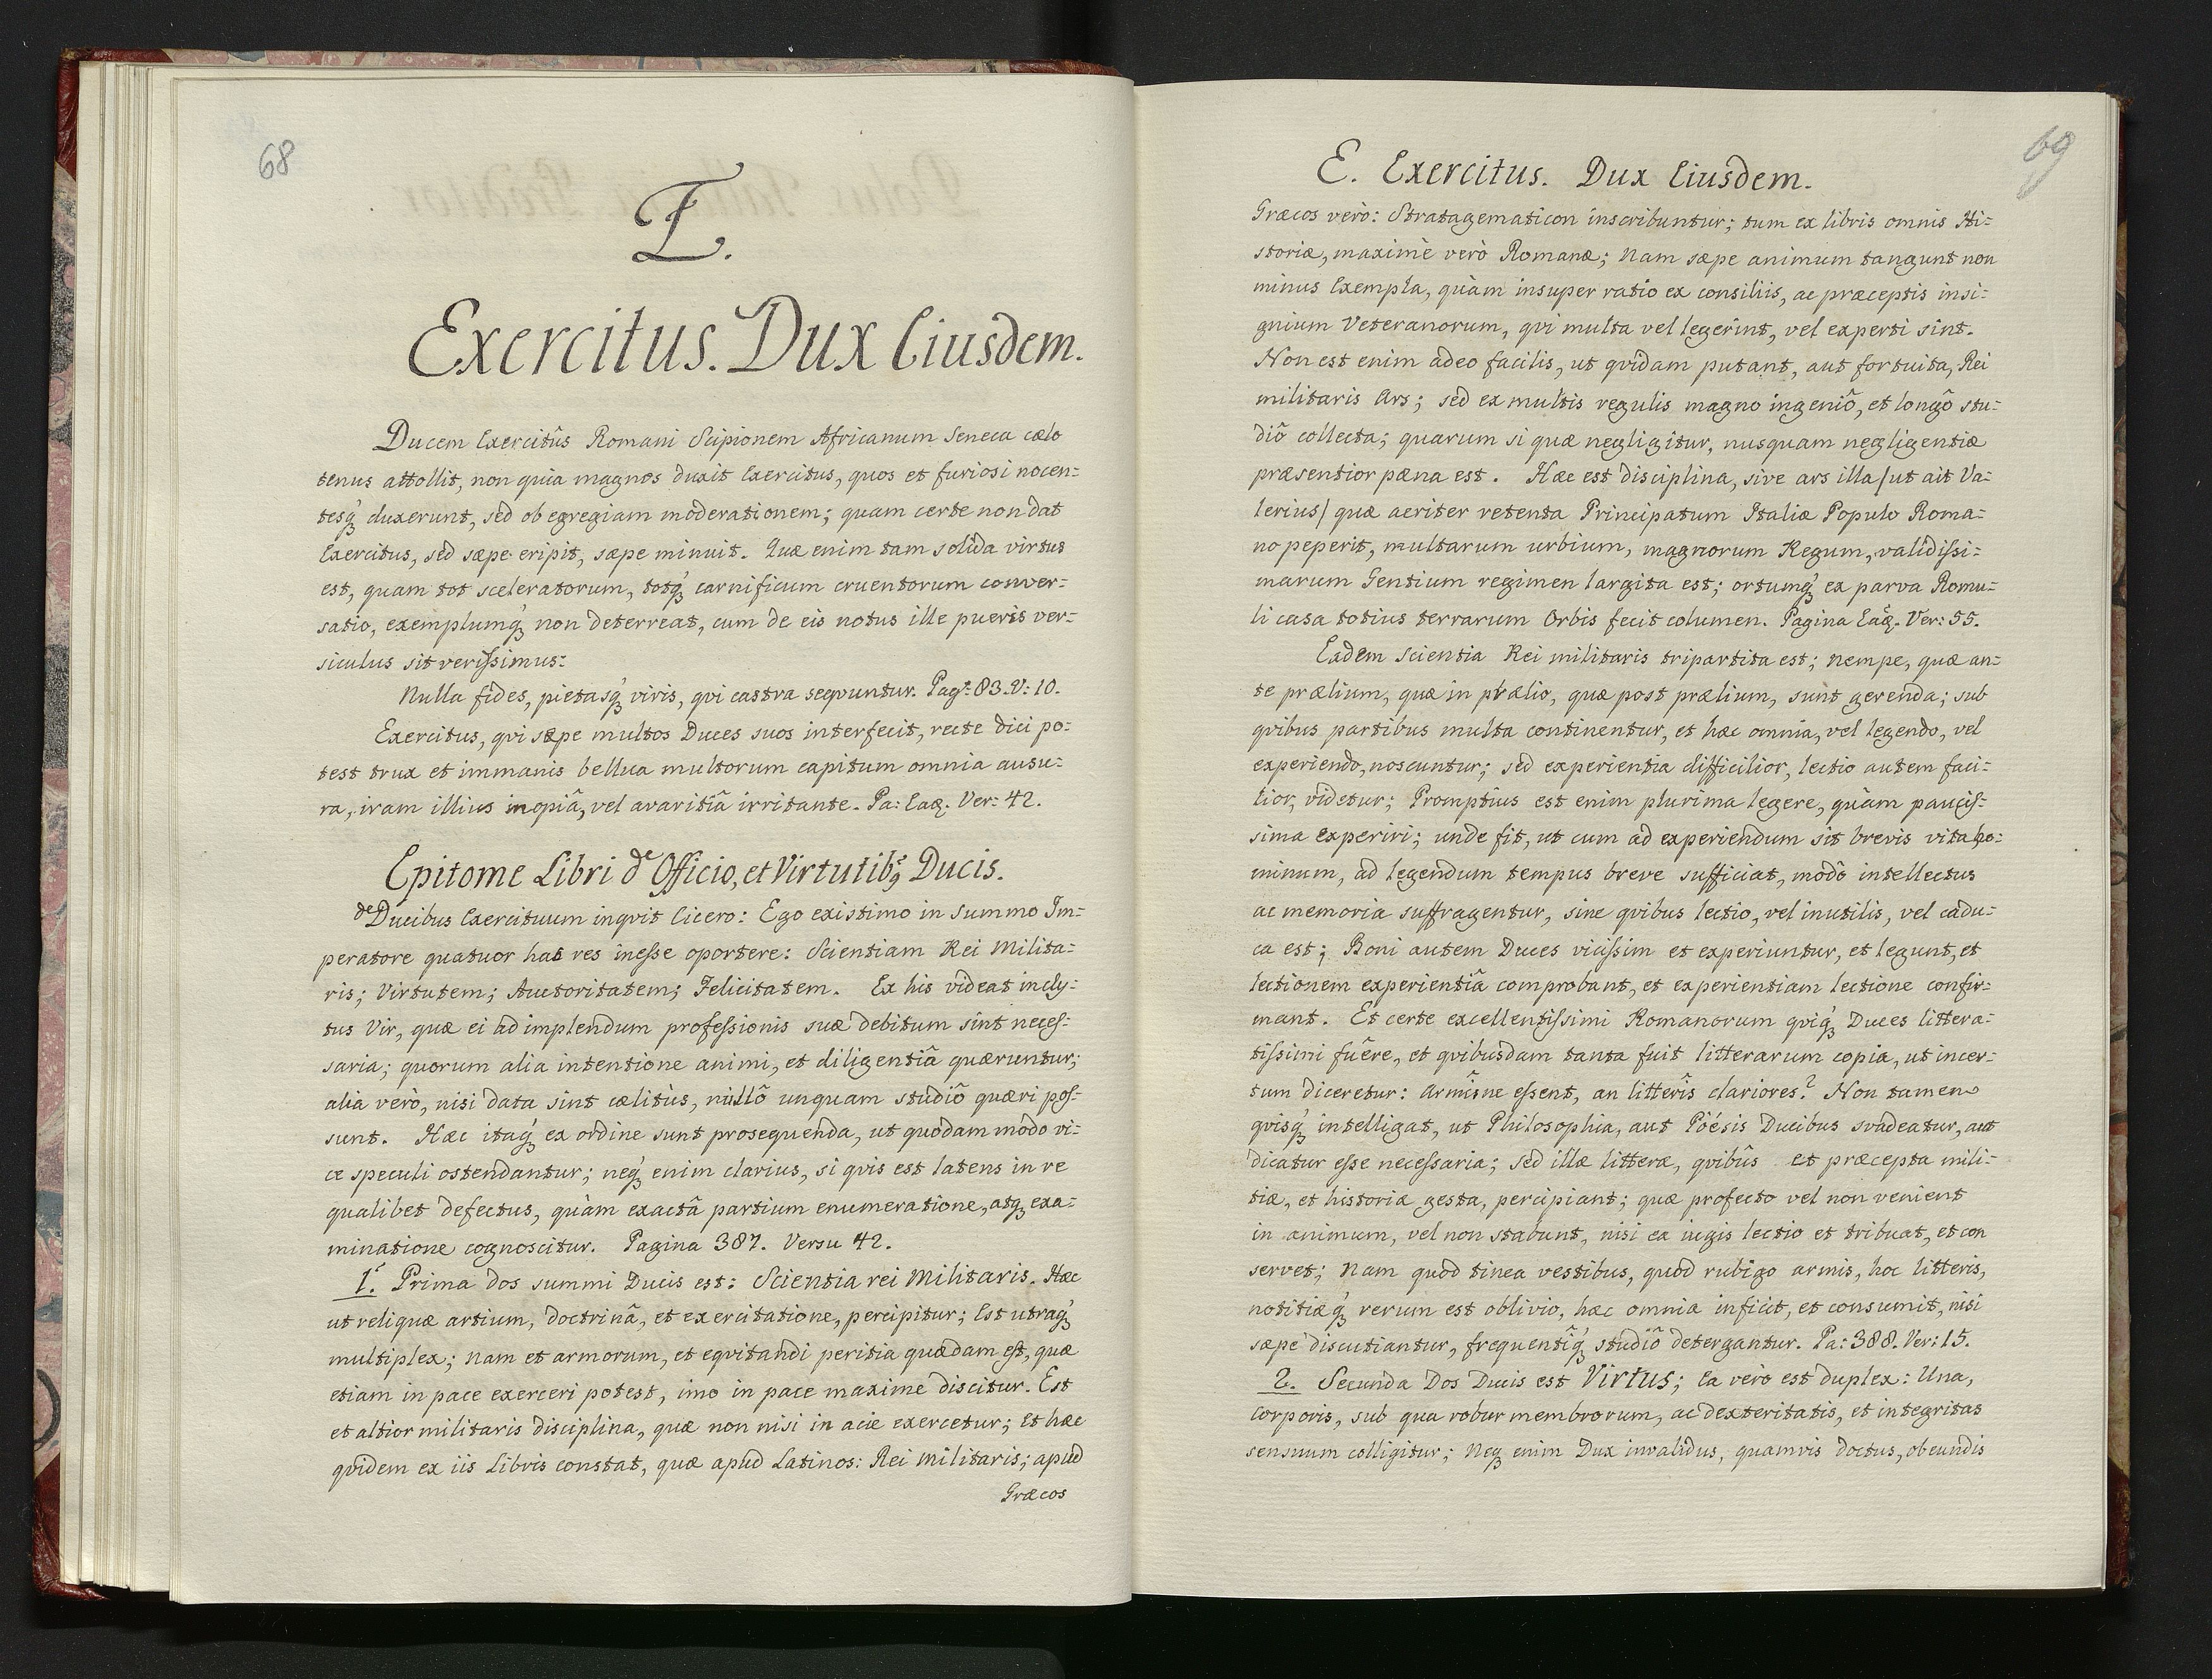 68
E.
Exercitus. Dux Eiusdem.
Ducem Exercitûs Romani Scipionem Africanum Seneca cælo
tenus attollit, non quia magnos duxit Exercitus, quos et furiosi nocen=
tesq́ꝫ duxerunt, sed ob egregiam moderationem; quam certe non dat
Exercitus, sed sæpe eripit, sæpe minuit. Quæ enim tam solida virtus
est, quam tot sceleratorum, totq́ꝫ carnificum cruentorum conver=
satio, exemplumq́ꝫ non deterreat, cum de eis notus ille pueris ver=
siculus sit verißimus:
Nulla fides, pietasq́ꝫ viris, qvi castra seqvuntur. Pagª: 83. V: 10.
Exercitus, qvi sæpe multos Duces suos interfecit, recte dici po=
test trux et immanis bellua multorum capitum omnia ausu=
ra, iram illius inopiâ, vel avaritiâ irritante. Pa: Eaꝫ. Ver: 42.
Epitome Libri de Officio, et Virtutibꝰ Ducis.
de Ducibus Exercituum inqvit Cicero: Ego existimo in summo Im=
peratore quatuor has res ineße oportere: Scientiam Rei Milita=
ris; Virtutem; Auctoritatem; Felicitatem. Ex his videat incly=
tus Vir, quæ ei ad implendum profeßionis suæ debitum sint neceß=
saria; quorum alia intentione animi, et diligentiâ quæruntur;
alia verò, nisi data sint cælitùs, nullô unquam studiô quæri poß=
sunt. Hæc itaq́ꝫ ex ordine sunt prosequenda, ut quodam modo vi=
ce speculi ostendantur; neq́ꝫ enim clarius, si qvis est latens in re
qualibet defectus, quàm exactâ partium enumeratione, atqꝫ exa=
minatione cognoscitur. Pagina 387. Versu 42.
1. Prima dos summi Ducis est: Scientia rei Militaris. Hæc
ut reliquæ artium, doctrinâ, et exercitatione, percipitur; Est utraq́ꝫ
multiplex; nam et armorum, et eqvitandi peritia quædam est, quæ
etiam in pace exerceri potest, imo in pace maxime discitur. Est
et altior militaris disciplina, quæ non nisi in acie exercetur; Et hæc
qvidem ex iis Libris constat, quæ apud Latinos: Rei Militaris; apud
Græcos
69
E. Exercitus. Dux Eiusdem.
Græcos verò: Stratagematicon inscribuntur; tum ex libris omnis Hi=
storiæ, maximè verò Romanæ; Nam sæpe animum tangunt non
minus Exempla, quàm insuper ratio ex consiliis, ac præceptis insi=
gnium Veteranorum, qvi multa vel legerint, vel experti sint.
Non est enim adeo facilis, ut qvidam putant, aut fortuita, Rei
militaris Ars; sed ex multis regulis magno ingeniô, et longô stu=
diô collecta; quarum si quæ negligitur, nusquam negligentiæ
præsentior pæna est. Hæc est disciplina, sive ars illa /ut ait Va=
lerius/ quæ acriter retenta Principatum Italiæ Populo Roma=
no peperit, multarum urbium, magnorum Regum, validißi=
marum Gentium regimen largita est; ortumq́ꝫ ex parva Romu=
li casa totius terrarum Orbis fecit columen. Pagina Eaꝫ. Ver: 55.
Eadem scientia Rei militaris tripartita est; nempe, quæ an=
te prælium, quæ in prælio, quæ post prælium, sunt gerenda; sub
qvibus partibus multa continentur, et hæc omnia, vel legendo, vel
experiendo, noscuntur; sed experientia difficilior, lectio autem faci=
lior, videtur; Promptius est enim plurima legere, quàm pauciß=
sima experiri; unde fit, ut cum ad experiendum sit brevis vita ho=
minum, ad legendum tempus breve sufficiat, modò intellectus
ac memoria suffragentur, sine qvibus lectio, vel inutilis, vel cadu=
ca est; Boni autem Duces vicißim et experiuntur, et legunt, et
lectionem experientiâ comprobant, et experientiam lectione confir=
mant. Et certe excellentißimi Romanorum qviq́ꝫ Duces littera=
tißimi fuêre, et qvibusdam tanta fuit litterarum copia, ut incer=
tum diceretur: armîsne eßent, an litterîs clariores? Non tamen
qvisq́ꝫ intelligat, ut Philosophia, aut Poésis Ducibus svadeatur, aut
dicatur eße neceßaria; sed illæ litteræ, qvibûs et præcepta mili=
tiæ, et historiæ gesta, percipiant; quæ profecto vel non venient
in animum, vel non stabunt, nisi ea iugis lectio et tribuat, et con
servet; Nam quod tinea vestibus, quod rubigo armis, hoc litteris,
notitiæq́ꝫ rerum est oblivio, hæc omnia inficit, et consumit, nisi
sæpe discutiantur, frequentîq́ꝫ studiô detergantur. Pa: 388. Ver: 15.
2. Secunda Dos Ducis est Virtus; Ea verò est duplex: Una,
Corporis, sub qua robur membrorum, ac dexteritatis, et integritas
sensuum colligitur; Neqꝫ enim Dux invalidus, quamvis doctus, obeundis